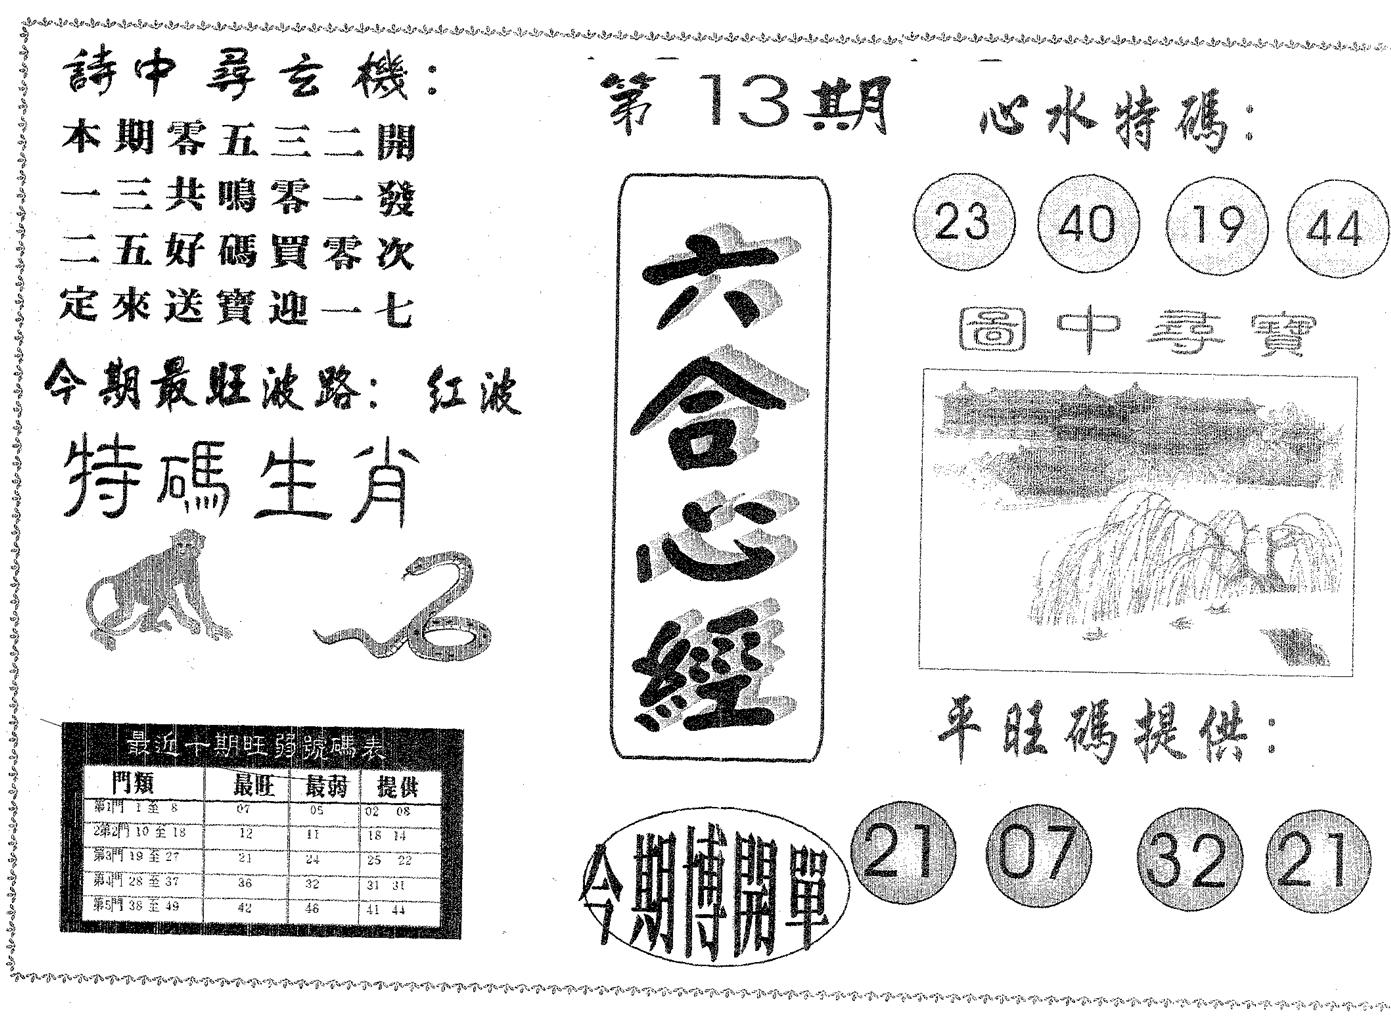 詩中尋玄機：
本期零五三二開
一三共鳴零一發
二五好碼買零次
定來送寶迎一七
今期最旺波路： 红波
特碼生肖
最近十期旺弱號碼表
門類 最旺 最弱 提供
第1門 1 至 8 07 05 02 08
2第2門 10 至 18 12 11 18 14
第3門 19 至 27 21 24 25 22
第4門 28 至 37 36 32 31 31
第5門 38 至 49 42 46 41 44
第13期
六合心經
今期博開單
心水特碼：
23 40 19 44
圖中尋寶
平旺碼提供：
21 07 32 21